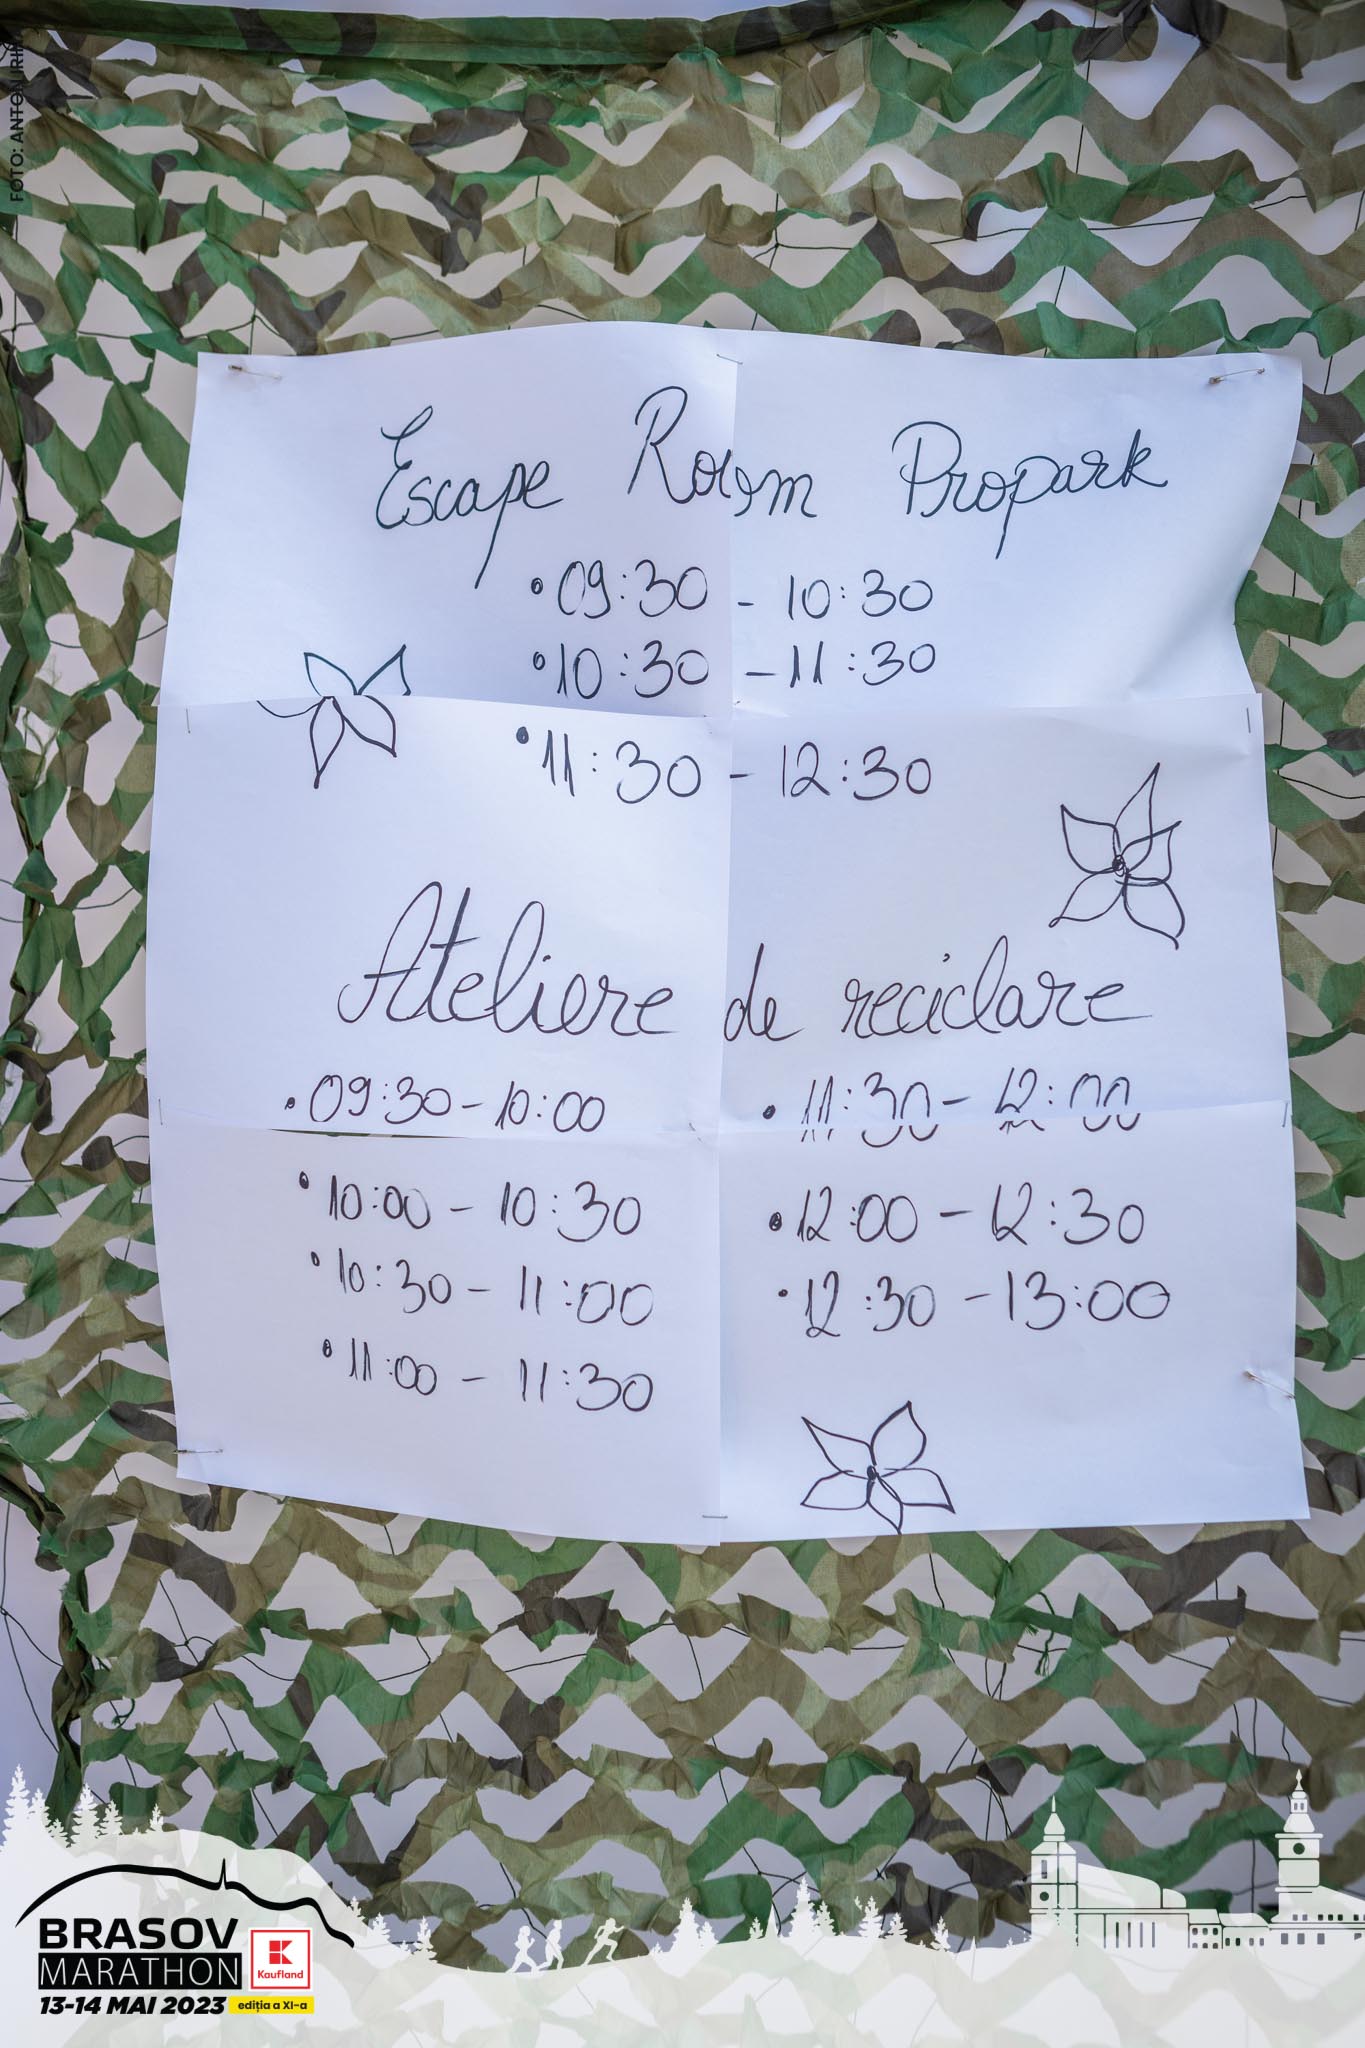 Escape Room Propark
• 09:30 - 10:30
• 10:30 - 11:30
• 11:30 - 12:30
Ateliere de reciclare
• 09:30 - 10:00
• 10:00 - 10:30
• 10:30 - 11:00
• 11:00 - 11:30
• 11:30 - 12:00
• 12:00 - 12:30
• 12:30 - 13:00
BRASOV
MARATHON
Kaufland
13-14 MAI 2023 ediția a XI-a
FOTO: